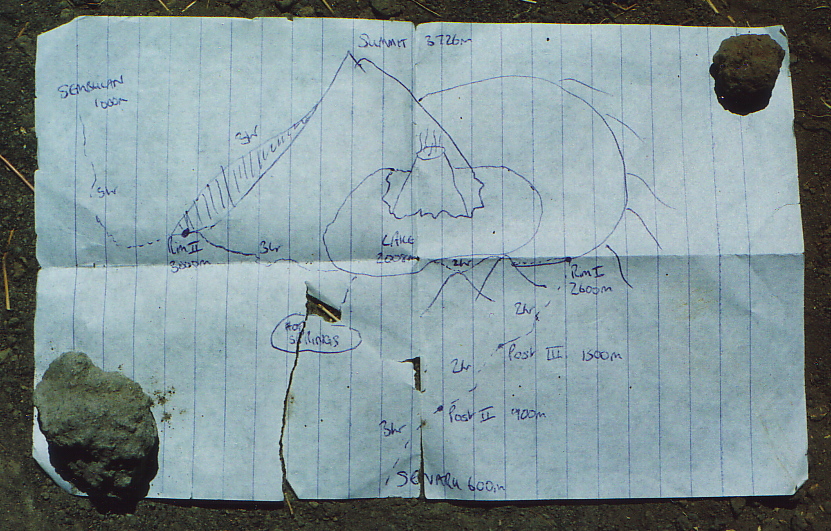 SUMMIT 3726m
SEMBULAN
1000m
3hr
5hr
Rm II
3000m
3hr
LAKE
2008m
2hr
Rm I
2600m
2hr
HOT
SPRINGS
Post III 1500m
2hr
Post II 900m
3hr
SENARU 600m